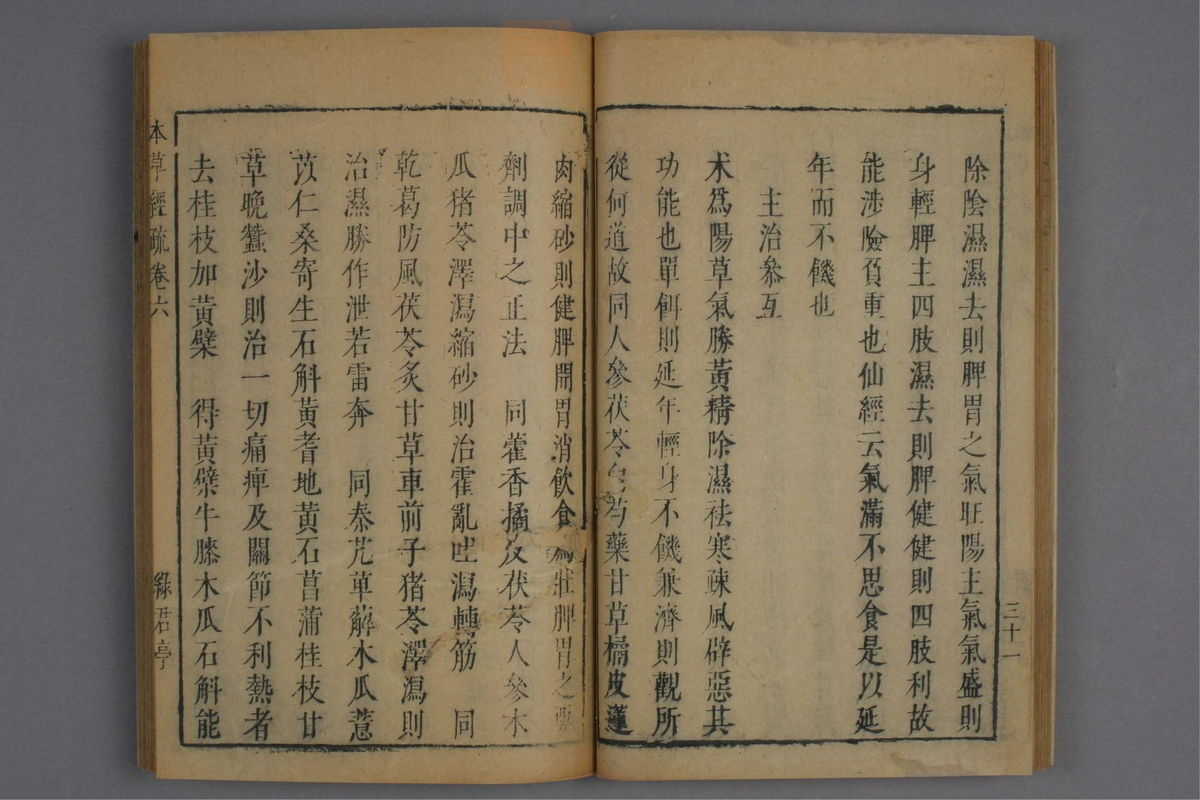 三十一
除陰濕濕去則脾胃之氣旺陽主氣氣盛則
身輕脾主四肢濕去則脾健健則四肢利故
能涉險負重也仙經云氣滿不思食是以延
年而不饑也
主治叅互
术爲陽草氣勝黃精除濕祛寒疎風辟惡其
功能也單餌則延年輕身不饑兼濟則觀所
從何道故同人參茯苓白芍藥甘草橘皮蓮
肉縮砂則健脾開胃消飲食爲壯脾胃之要
劑調中之正法　同藿香橘皮茯苓人參木
瓜猪苓澤瀉縮砂則治霍亂吐瀉轉筋　同
乾葛防風茯苓炙甘草車前子猪苓澤瀉則
治濕勝作泄若雷奔　同秦艽萆薢木瓜薏
苡仁桑寄生石斛黃耆地黃石菖蒲桂枝甘
草晚蠶沙則治一切痛痺及關節不利熱者
去桂枝加黃檗　得黃檗牛膝木瓜石斛能
本草經疏卷六
綠君亭